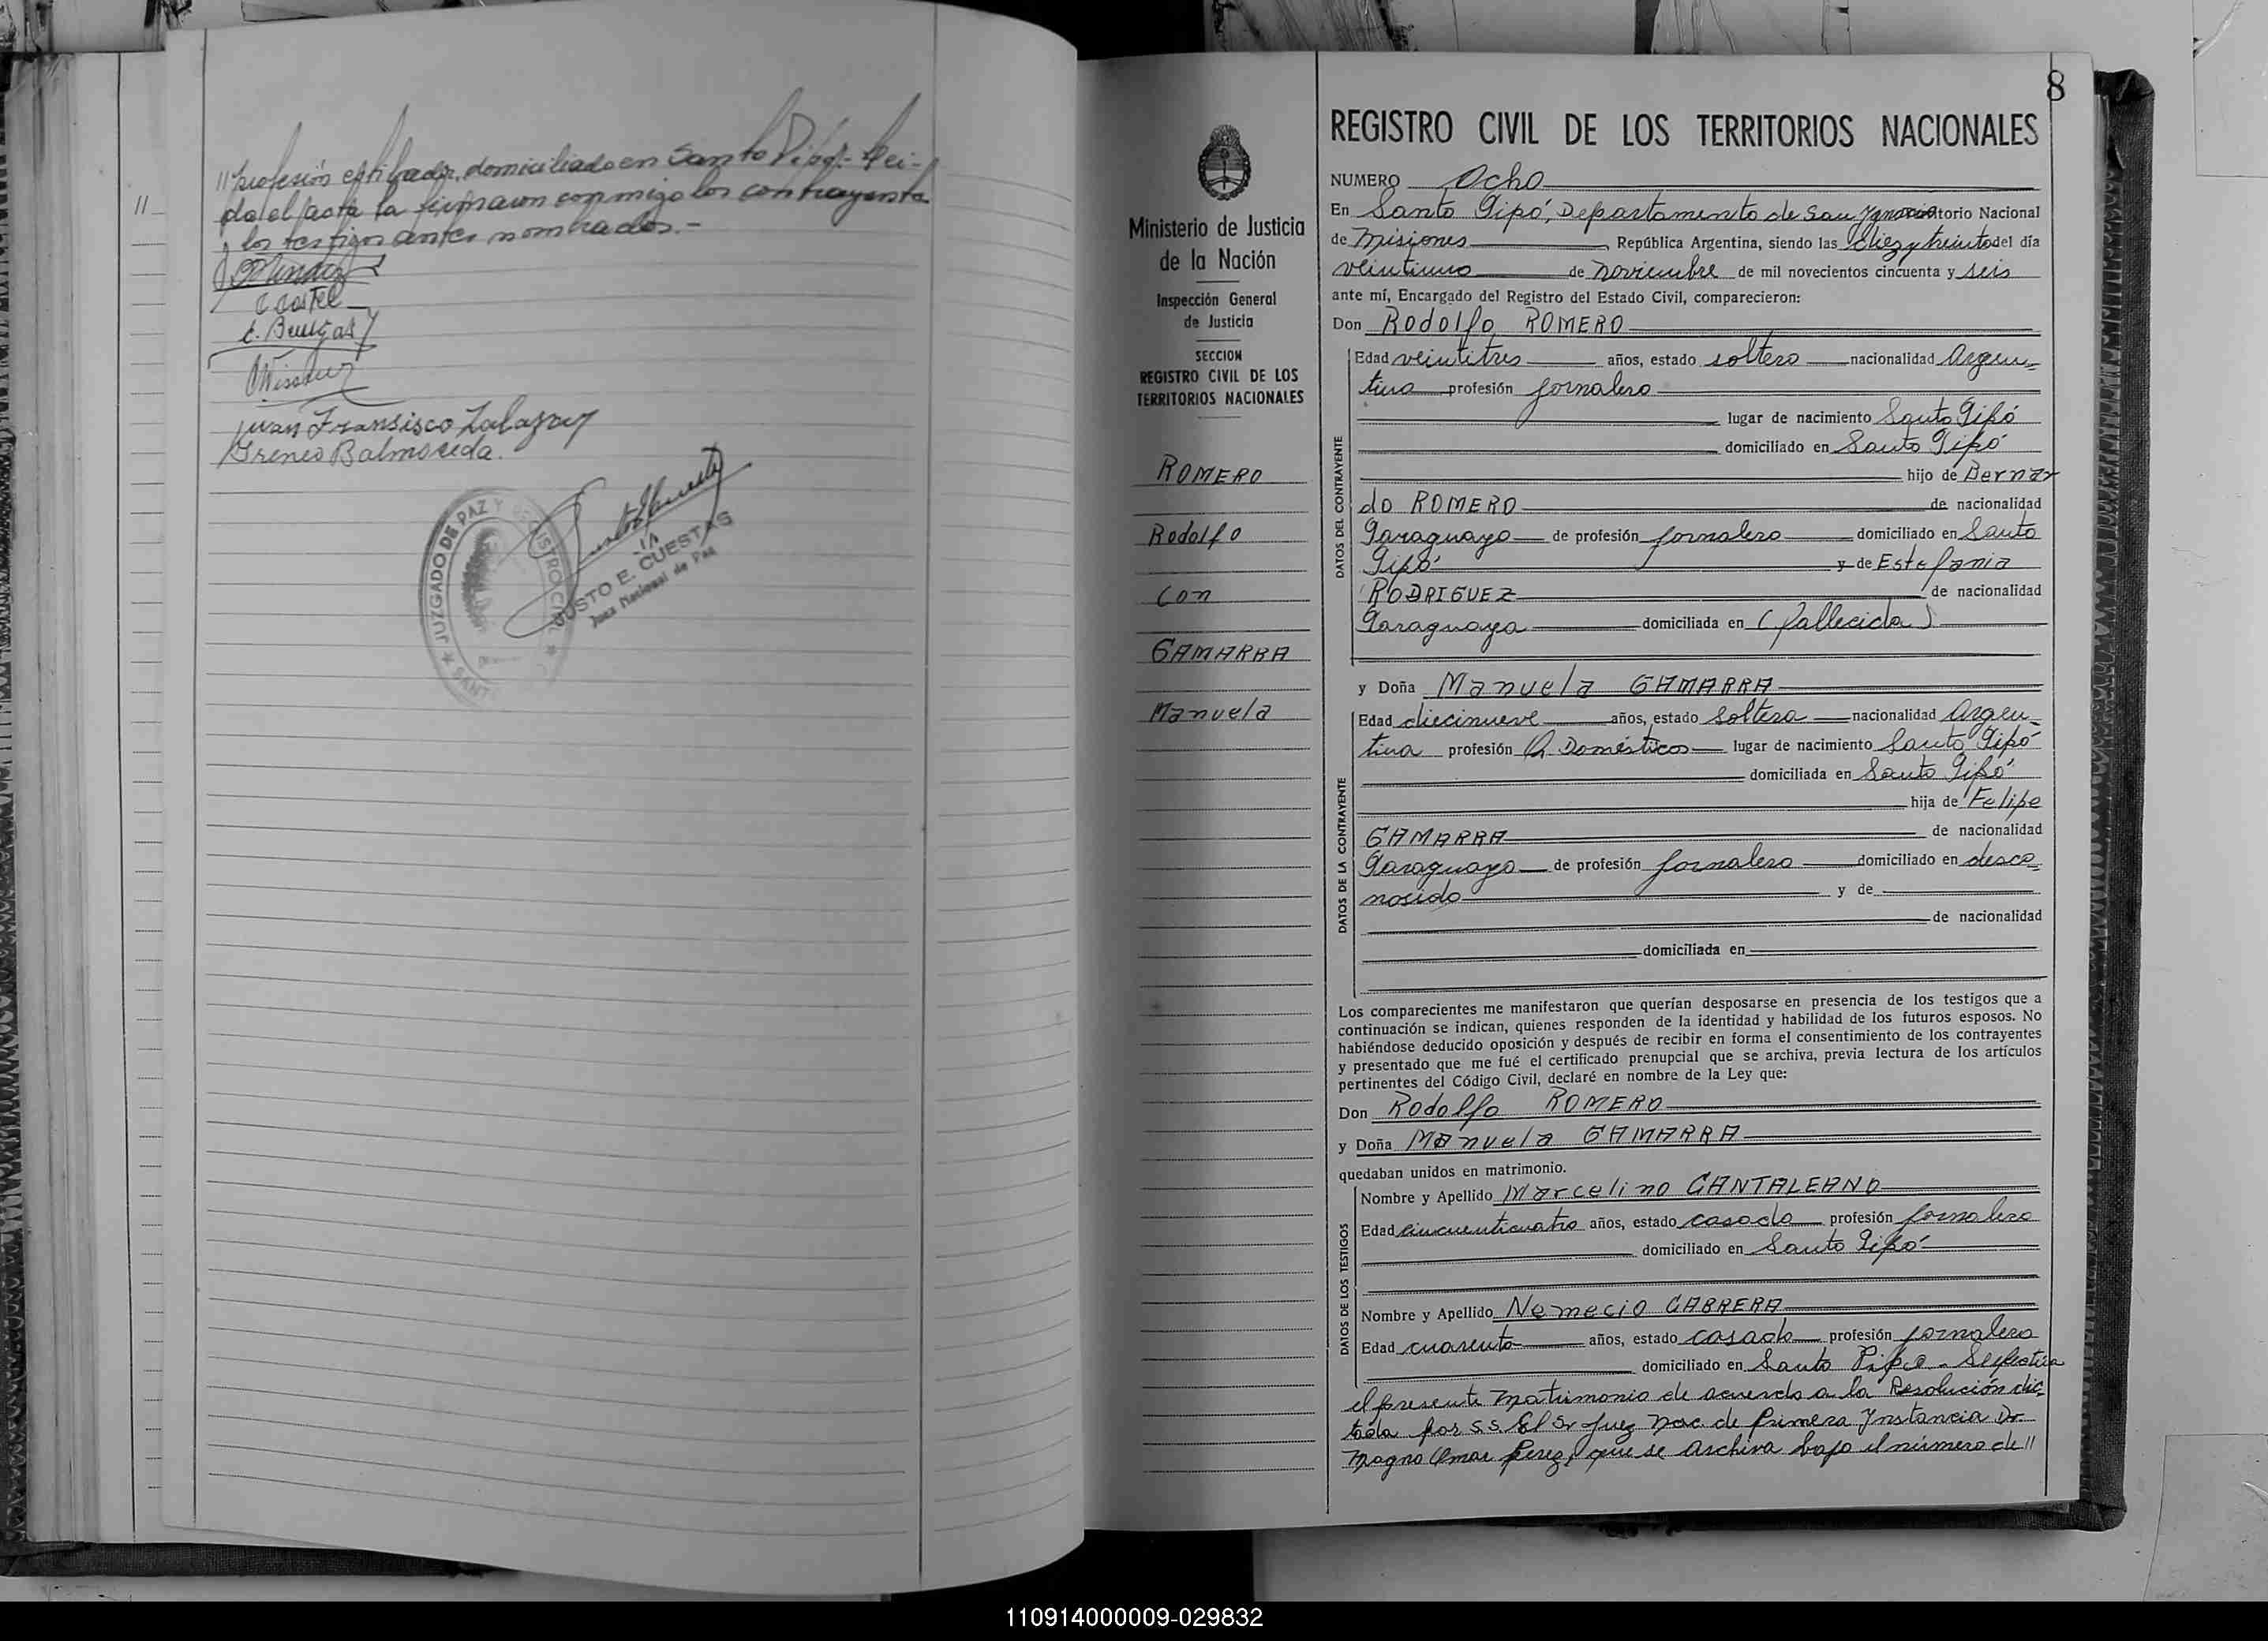 // profesión estibador, domiciliado en Santo Pipó.- Lei-
da el acta la firmaron conmigo los contrayentes
y los testigos antes nombrados.-
Juan Fransisco Zalazar
Ireneo Balmaceda.
JUZGADO DE PAZ Y REGISTRO CIVIL
SANT
JUSTO E. CUESTAS
Juez Nacional de Paz
8
Ministerio de Justicia
de la Nación
Inspección General
de Justicia
SECCION
REGISTRO CIVIL DE LOS
TERRITORIOS NACIONALES
ROMERO
Rodolfo
Con
GAMARRA
Manuela
REGISTRO CIVIL DE LOS TERRITORIOS NACIONALES
NUMERO Ocho
En Santo Pipó, Departamento de San Ignacio Territorio Nacional
de Misiones, República Argentina, siendo las diez y treinta del día
veintiuno de noviembre de mil novecientos cincuenta y seis
ante mí, Encargado del Registro del Estado Civil, comparecieron:
Don Rodolfo ROMERO
DATOS DEL CONTRAYENTE
Edad veintitres años, estado soltero nacionalidad Argen-
tina profesión jornalero
lugar de nacimiento Santo Pipó
domiciliado en Santo Pipó
hijo de Bernar
do ROMERO de nacionalidad
Paraguayo de profesión jornalero domiciliado en Santo
Pipó y de Estefania
RODRIGUEZ de nacionalidad
Paraguaya domiciliada en (fallecida)
y Doña Manuela GAMARRA
DATOS DE LA CONTRAYENTE
Edad diecinueve años, estado soltera nacionalidad Argen-
tina profesión Q. Domésticos lugar de nacimiento Santo Pipó
domiciliada en Santo Pipó
hija de Felipe
GAMARRA de nacionalidad
Paraguayo de profesión jornalero domiciliado en desco-
nosido y de
de nacionalidad
domiciliada en
Los comparecientes me manifestaron que querían desposarse en presencia de los testigos que a
continuación se indican, quienes responden de la identidad y habilidad de los futuros esposos. No
habiéndose deducido oposición y después de recibir en forma el consentimiento de los contrayentes
y presentado que me fué el certificado prenupcial que se archiva, previa lectura de los artículos
pertinentes del Código Civil, declaré en nombre de la Ley que:
Don Rodolfo ROMERO
y Doña Manuela GAMARRA
quedaban unidos en matrimonio.
DATOS DE LOS TESTIGOS
Nombre y Apellido Marcelino CANTALEANO
Edad cincuenticuatro años, estado casado profesión jornalero
domiciliado en Santo Pipó
Nombre y Apellido Nemecio CABRERA
Edad cuarenta años, estado casado profesión jornalero
domiciliado en Santo Pipó. Se efectúa
el presente matrimonio de acuerdo a la Resolución dic-
tada por S.S. El Sr Juez Nac. de Primera Instancia Dr.
Magno Omar Perez, que se archiva bajo el número de //
110914000009-029832